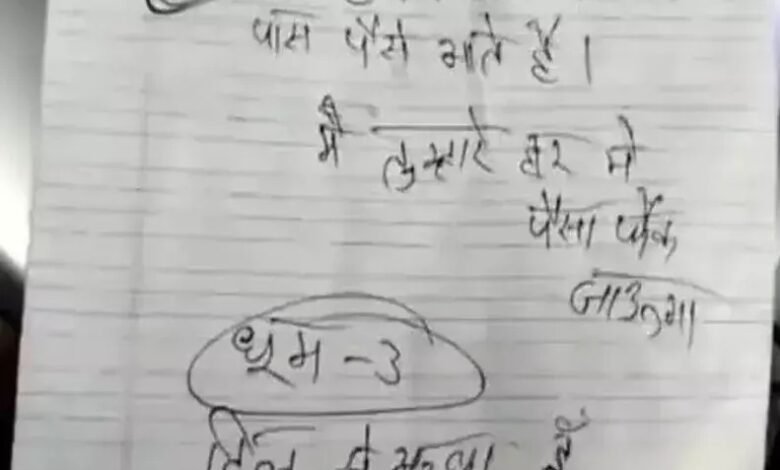 पास पैसे आते हैं।
मै तुम्हारे घर मे
पैसा फेंक
जाउन्गा
धूम - 3